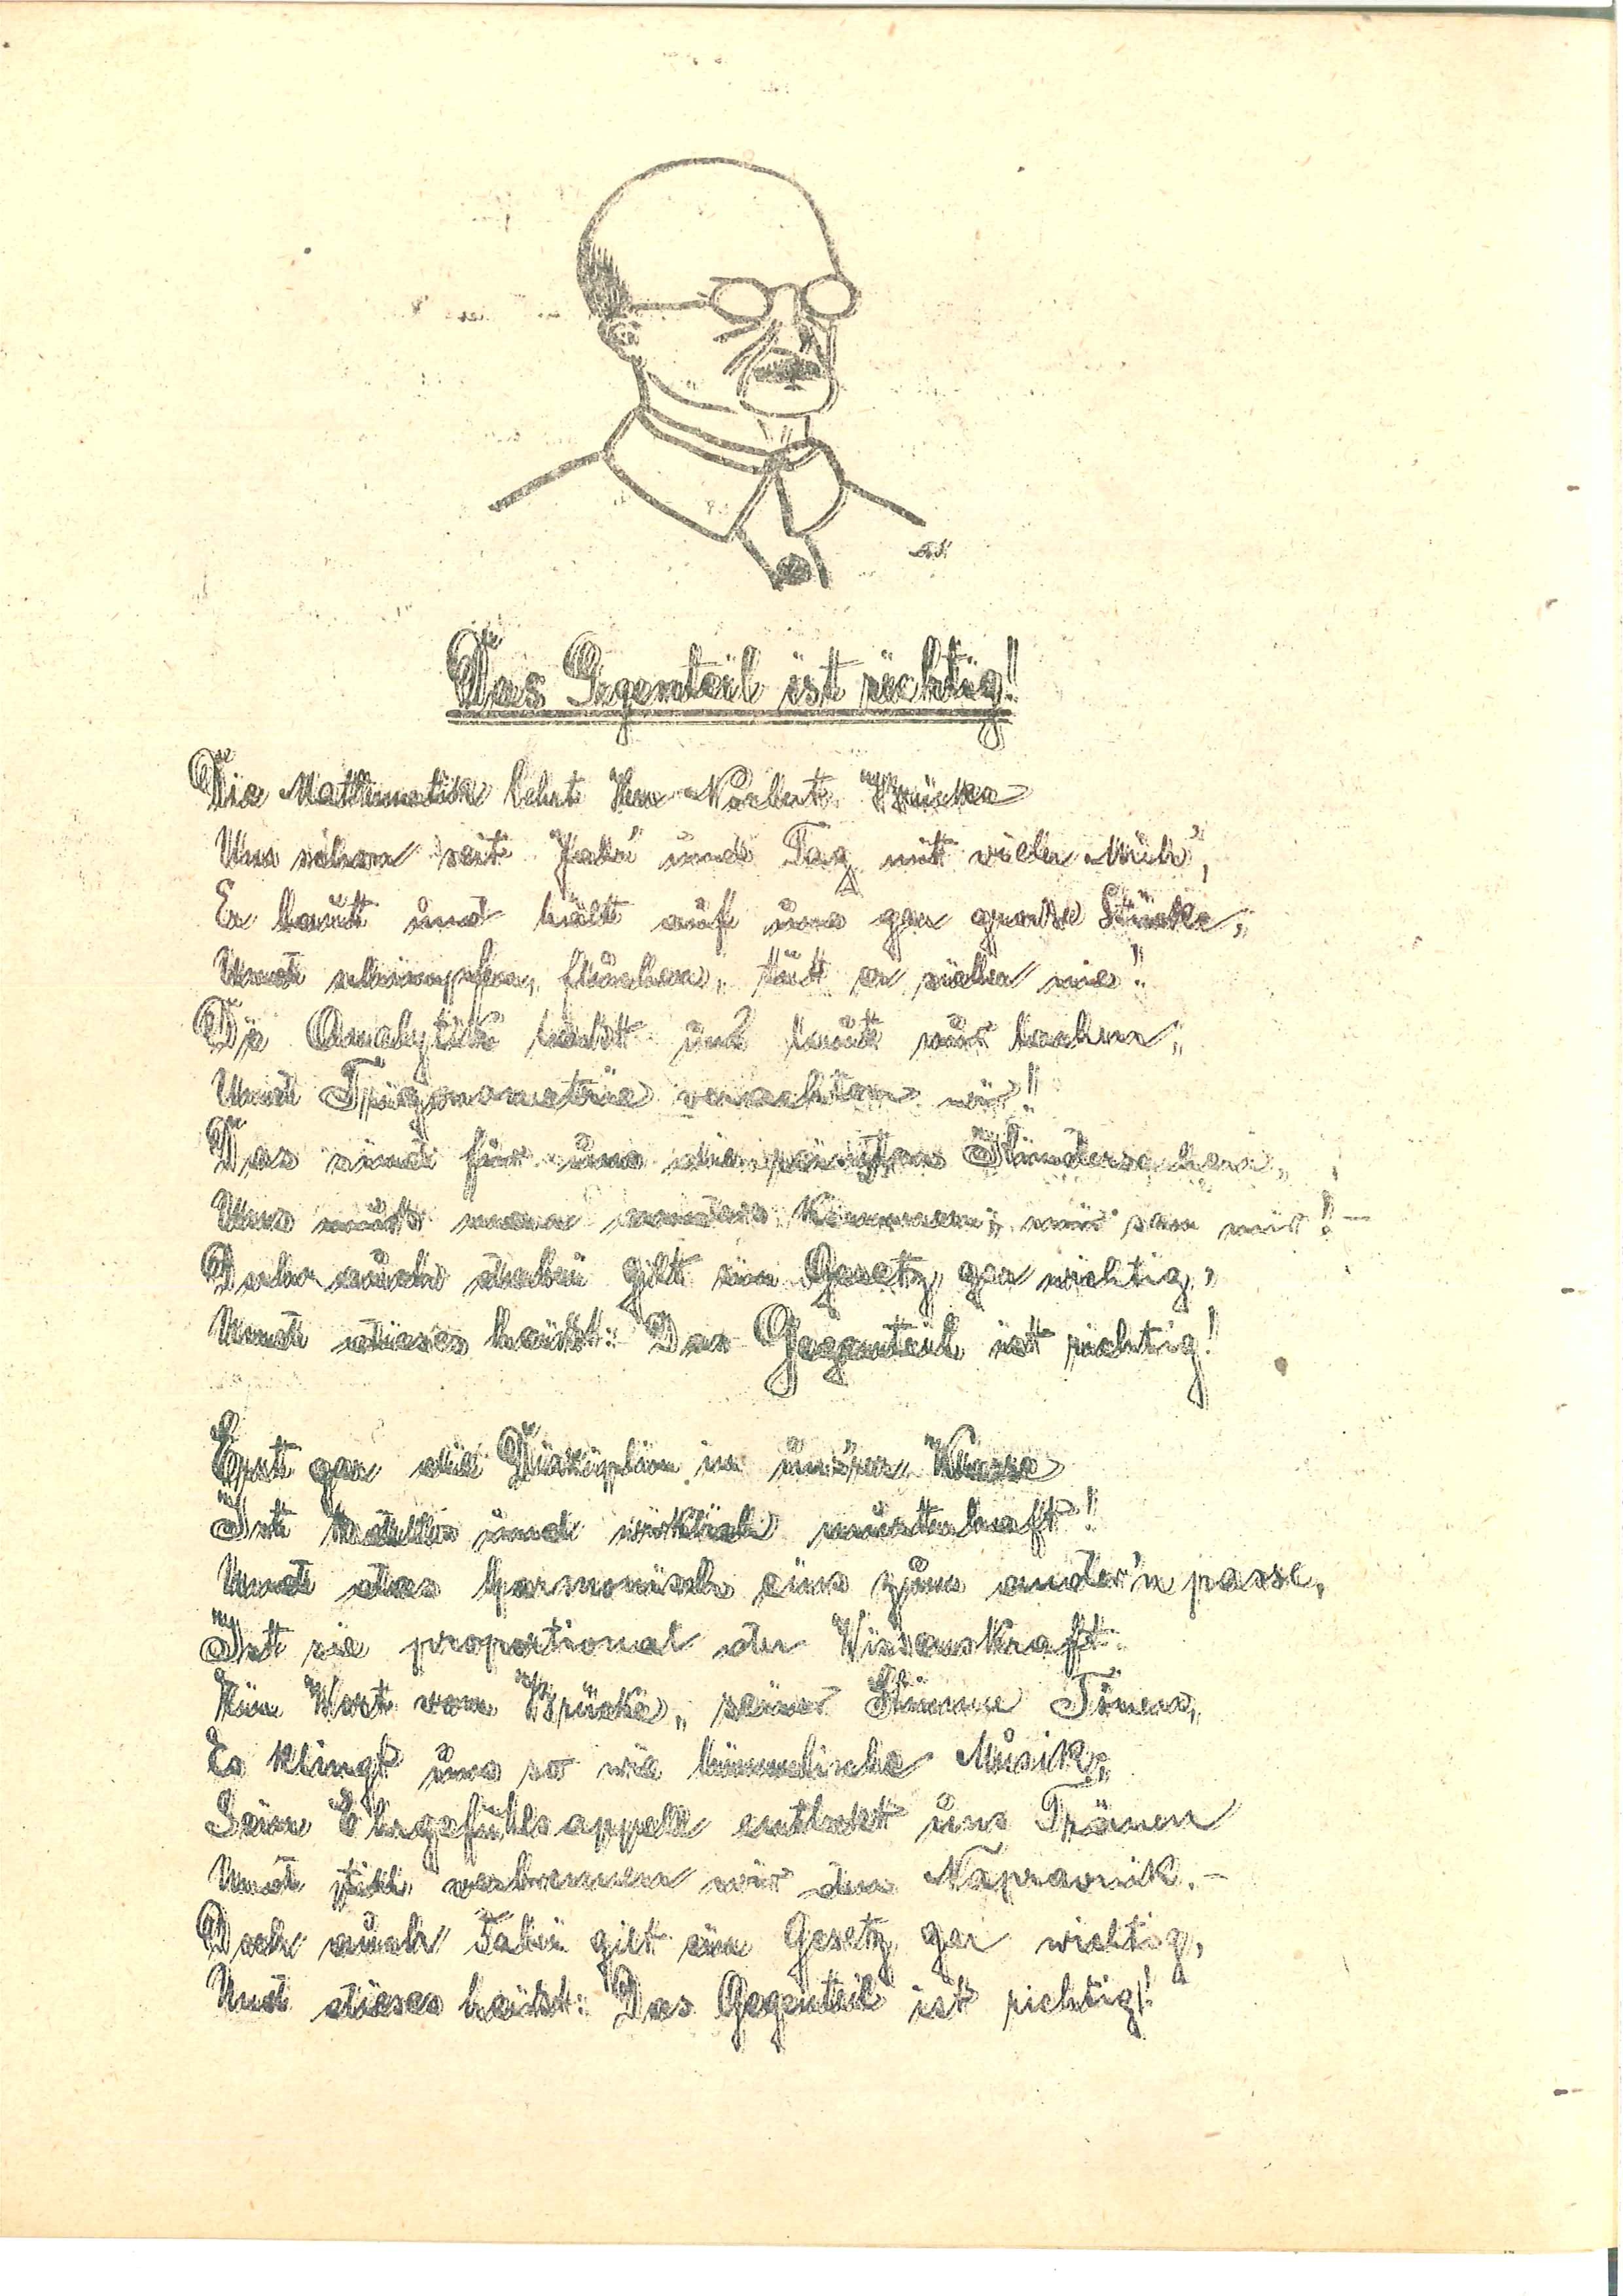 Das Gegenteil ist richtig!
Die Mathematik lehrt Herr Norbert Brücke
Uns schon seit Jahr' und Tag mit vieler Müh',
Er baut und hält auf uns gar grosse Stücke,
Und schimpfen, fluchen, tut er sicher nie!
Die Analytik macht uns laut nur lachen,
Und Trigonometrie verachten wir!
Das sind für uns die reinsten Kindersachen,
Uns muss man anders kommen, mir san mir! –
Doch auch dabei gilt ein Gesetz, gar wichtig,
Und dieses heisst: Das Gegenteil ist richtig!
Erst gar die Disziplin in unsrer Klasse
Ist tadellos und wirklich musterhaft!
Und dass harmonisch eins zum ander'n passe,
Ist sie proportional der Wissenskraft.
Ein Wort von Brücke, seiner Stimme Tönen,
Es klingt uns so wie himmlische Musik;
Sein Ehrgefühlsappell entlockt uns Tränen
Und still verbrennen wir den Napravnik. –
Doch auch dabei gilt ein Gesetz gar wichtig,
Und dieses heisst: Das Gegenteil ist richtig!